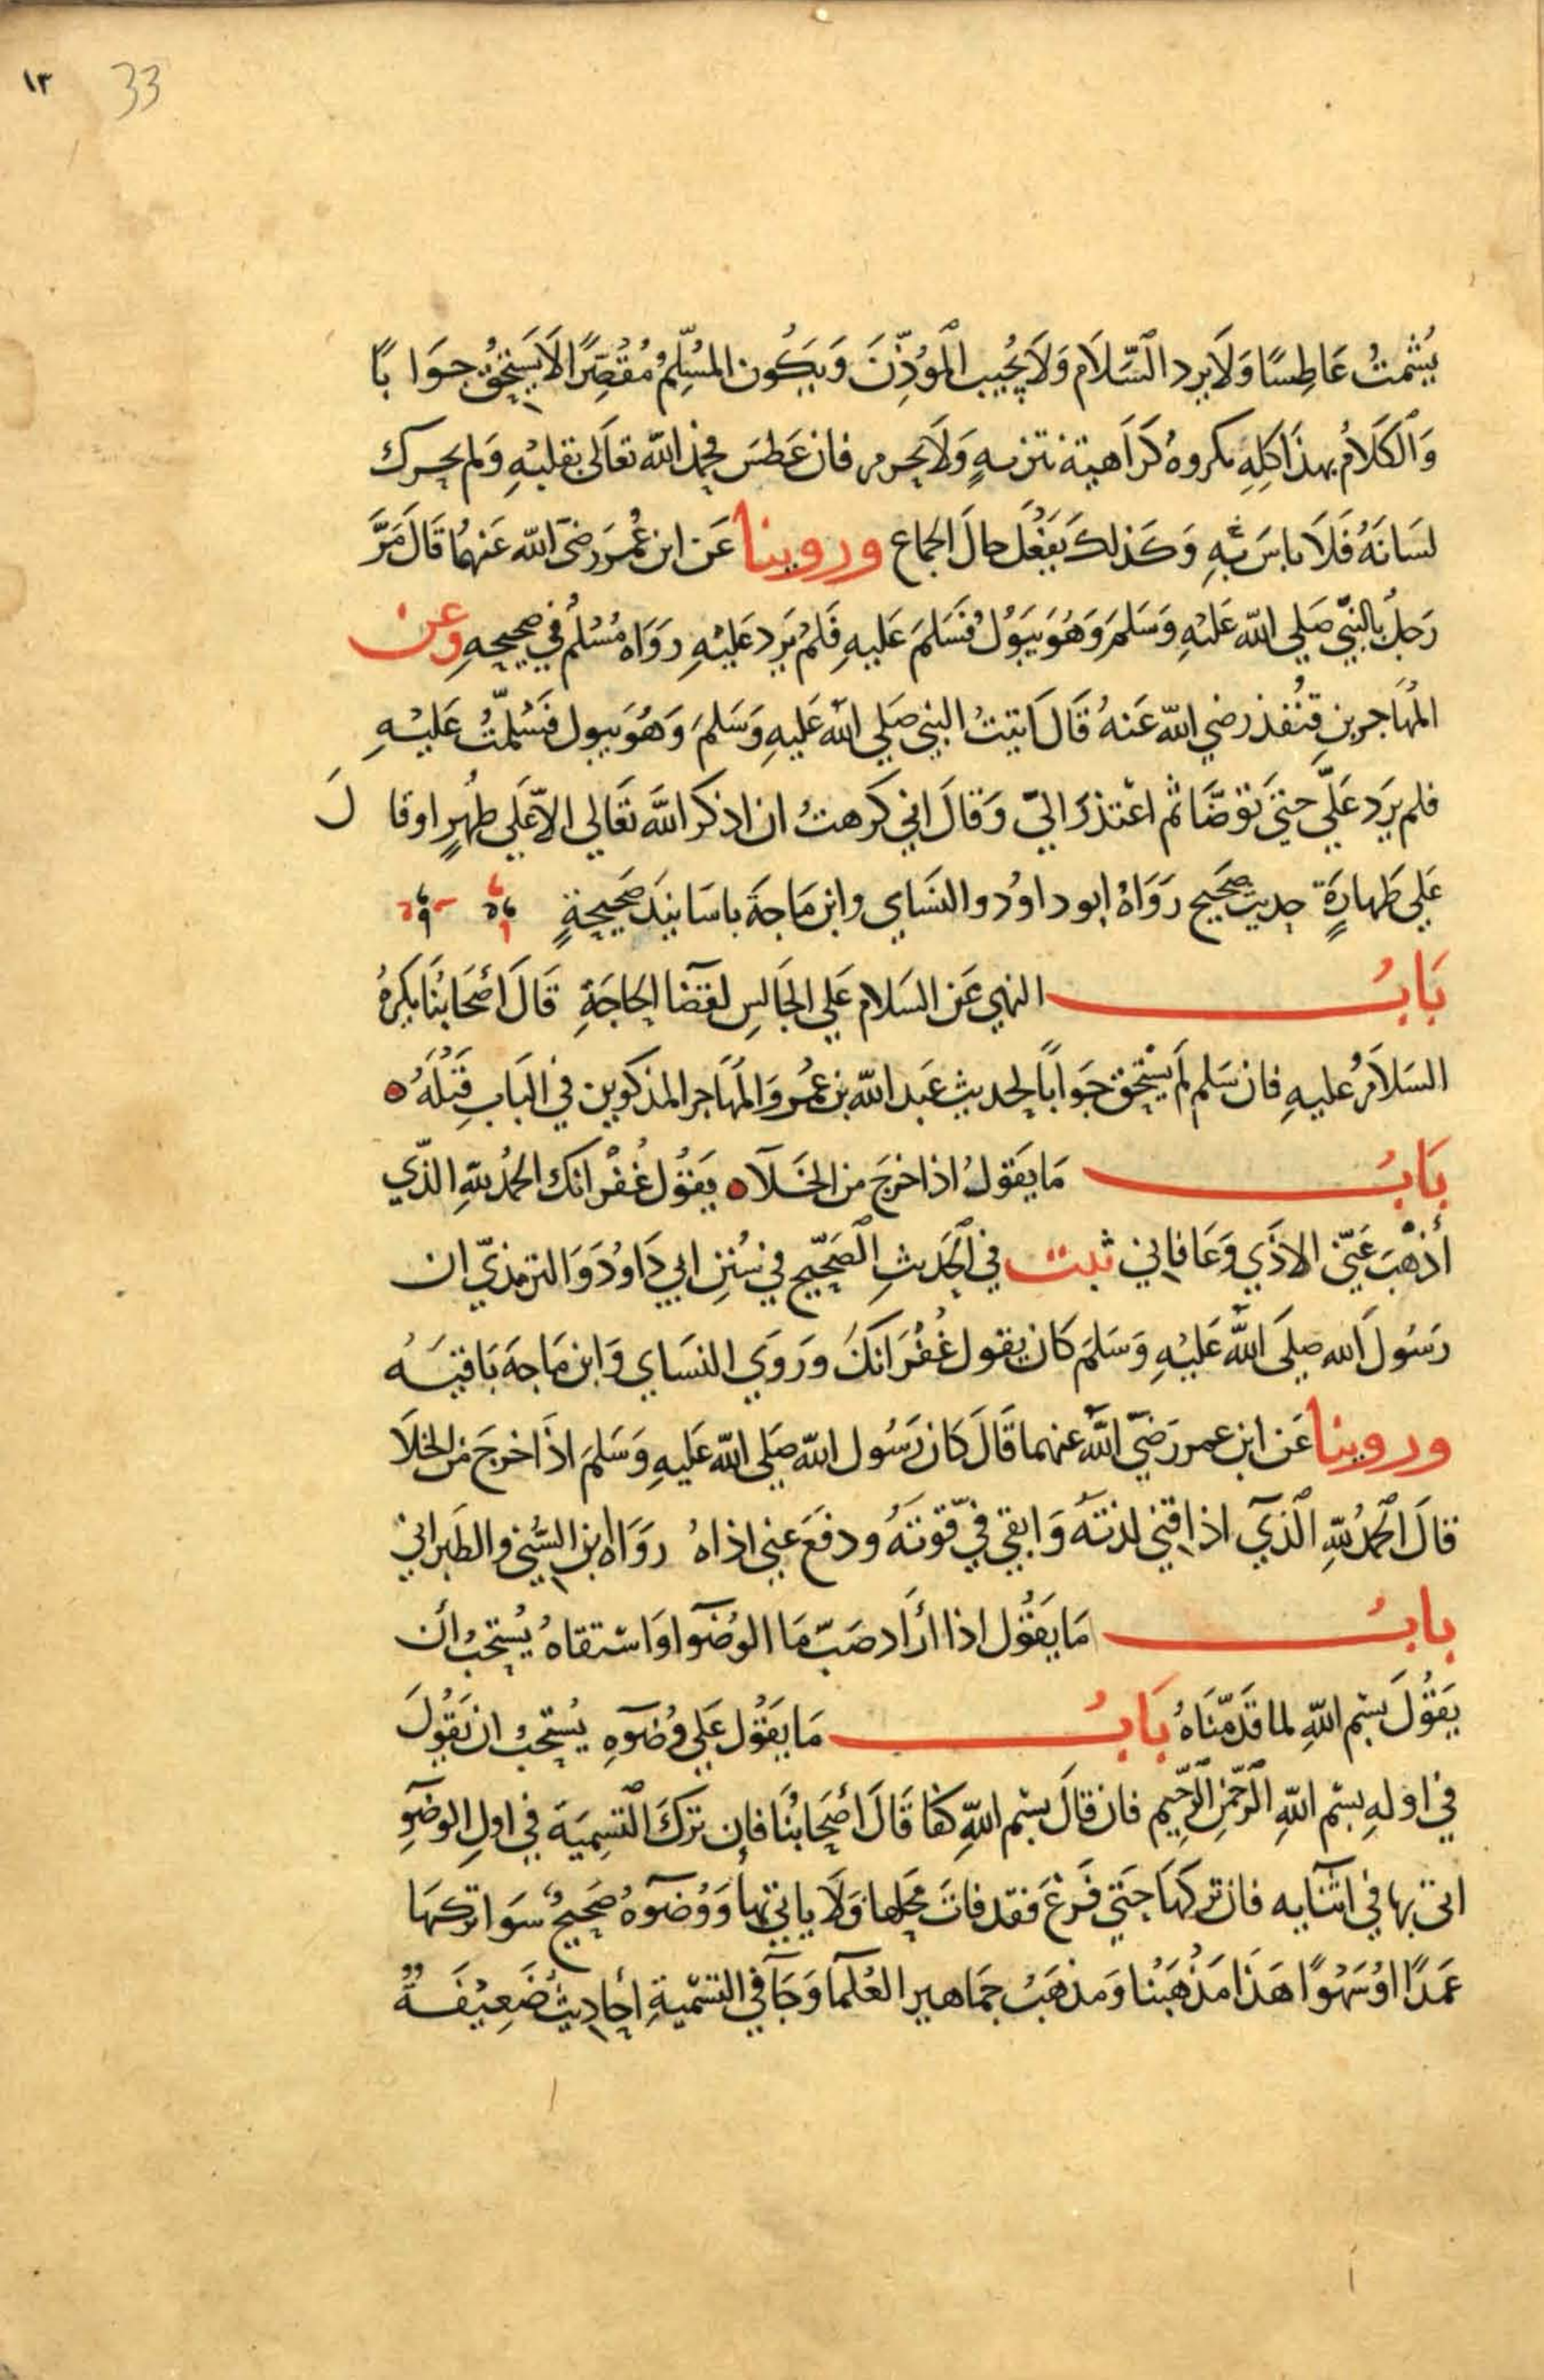 ١٣ 33
يُشَمِّتُ عَاطِسًا وَلَا يرد السَّلَام وَلَا يُجيب المُؤَذِّنَ وَيَكُون المُسَلِّمُ مُقَصِّرًا لَا يَستَحِقُّ جَوَابًا
وَالكَلَامُ بهذَا كلِّهِ مكروهٌ كَرَاهية تنزيهٍ وَلَا يحرم فان عَطسَ فحمِدَ الله تعَالَى بقلبهِ وَلم يحرك
لسَانَهُ فَلَا باسَ بهِ وَكَذلك يَفْعَلُ حال الجماع وروينا عَن ابن عُمَر رضى الله عَنهُمَا قَالَ مَرَّ
رَجلٌ بالنَّبيِّ صَلي الله عَليْهِ وَسَلمَ وَهُوَ يَبُولُ فَسَلمَ عَليهِ فَلمْ يَرد عَليْهِ رَوَاهُ مُسْلمٌ في صحيحِهِ وعن
المُهَاجر بنِ قنُفذ رضي الله عَنهُ قَالَ اتيتُ النبي صَلي الله عَليهِ وَسَلمَ وَهُوَ يبول فسَلّمتُ عَليْهِ
فلم يرَد عَلَيّ حتىَ تَوَضّا ثم اعْتذرَ اليّ وَقالَ اني كرهتُ ان اذكر اللهَ تعَالي الّا عَلي طُهرٍ او قالَ
عَلي طَهارَةٍ حديث صحَيح رَوَاهُ ابو داوُد والنسَاي وابن مَاجَة باسَانيدَ صَحيحةٍ
بَابُ النهي عَن السَلام عَلي الجَالسِ لقضَا الحاجَةِ قَالَ أصحَابنَا يكرهُ
السَلاَمُ عليهِ فان سَلم لم يَستَحق جَوابًا لحديثِ عَبد الله بن عُمَر وَالمُهَاجر المذكورين في البَابِ قبَلهُ ه
بَابُ مَا يَقولُ اذا خرَجَ من الخَلآء ه يَقوُل غُفْرانك الحمدُ للهِ الذّي
أذْهَبَ عَنّي الاذَي وَعَافاني ثبت في الحَديثِ الصّحَيحِ في سُنَنِ ابي دَاوُدَ وَالترمذيّ ان
رَسُولَ الله صلي اللهُ عَليْهِ وَسَلم كان يقول غُفْرَانكَ وَرَوَي النسَاي وَابن مَاجة بَاقيَه
وروينا عَن ابن عمر رَضيَ اللهُ عنهما قَالَ كَان رَسُول الله صَلي الله عَليهِ وَسَلمَ اذَا خرجَ من الخلاَ
قالَ الحمدُ للهِ الذَي اذاقني لذتَه وَابقي فيّ قوّتَهُ ودفعَ عني اذاهُ روَاه ابن السُّني والطَبراني
بابُ مَا يَقُول اذا أرَاد صَبّ مَا الوُضوَ او اسْتقاهُ يُستحَبُ أن
يَقوُلَ بسْم اللهِ لما قدّمنَاهُ بَابُ مَا يَقوُل عَلي وُضوَهِ يُستحَبُ ان يَقُولَ
في اولهِ بسْم اللهِ الرّحْمنِ الرَّحِيم فان قالَ بسْم اللهِ كفا قَالَ أصحَابنَُا فان ترَكَ التّسِميَةَ في اولِ الوضوِ
اتى بها في اثنَايه فان تركهَا حَتي فَرغَ فقد فاتَ محَلها وَلا ياتي بهَا وَوُضوَهُ صَحيحٌ سَوا تركهَا
عَمدًا اوْ سَهْوًا هَذَا مَذْهَبُنَا وَمذهَبُ جمَاهير العُلمَا وَجَآ في التسْميةِ أحَاديثُ ضَعِيْفَةٌ